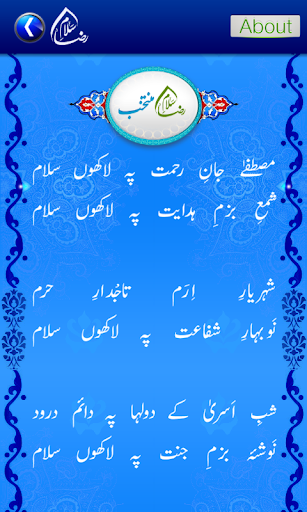 سلام رضا
About
سلام رضا منتخب
مصطفےٰ جانِ رحمت پہ لاکھوں سلام
شمعِ بزمِ ہدایت پہ لاکھوں سلام
شہریارِ اِرَم تاجْدارِ حرم
نَوبہارِ شفاعت پہ لاکھوں سلام
شبِ اَسریٰ کے دولہا پہ دائم درود
نَوشۂ بزمِ جنت پہ لاکھوں سلام